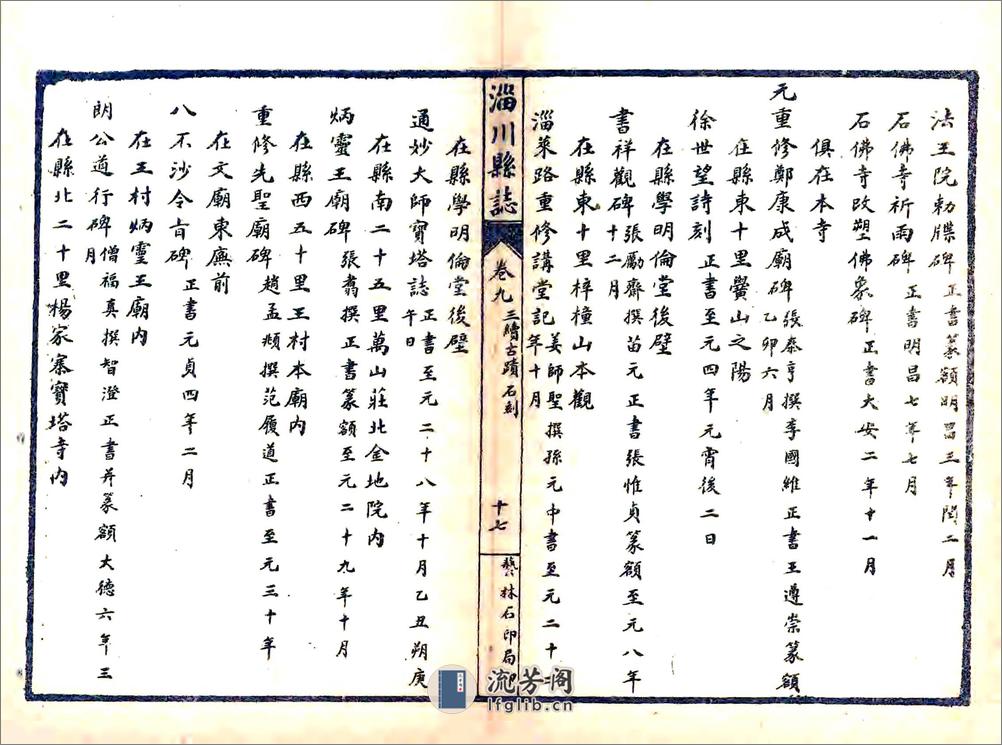 法王院勅牒碑正書篆額明昌三年閏二月
石佛寺祈雨碑正書明昌七年七月
石佛寺改塑佛象碑正書大安二年十一月
俱在本寺
元重修鄭康成廟碑張泰亨撰李國維正書王遵崇篆額
乙卯六月
在縣東十里黌山之陽
徐世望詩刻正書至元四年元宵後二日
在縣學明倫堂後壁
書祥觀碑張勵齊撰苗元正書張惟貞篆額至元八年
十二月
在縣東十里梓橦山本觀
淄萊路重修講堂記姜師聖撰孫元中書至元二十二
年十月
淄川縣誌
卷九
三續古蹟石刻
十七
藝林石印局印
在縣學明倫堂後壁
通妙大師寶塔誌正書至元二十八年十月乙丑朔庚
午日
在縣南二十五里萬山莊北金地院內
炳靈王廟碑張翥撰正書篆額至元二十九年十月
在縣西五十里王村本廟內
重修先聖廟碑趙孟頫撰范履道正書至元三十年
在文廟東廡前
八不沙令旨碑正書元貞四年二月
在王村炳靈王廟內
朗公道行碑僧福真撰智澄正書并篆額大德六年三
月
在縣北二十里楊家寨寶塔寺內
流芳阁
lfglib.cn